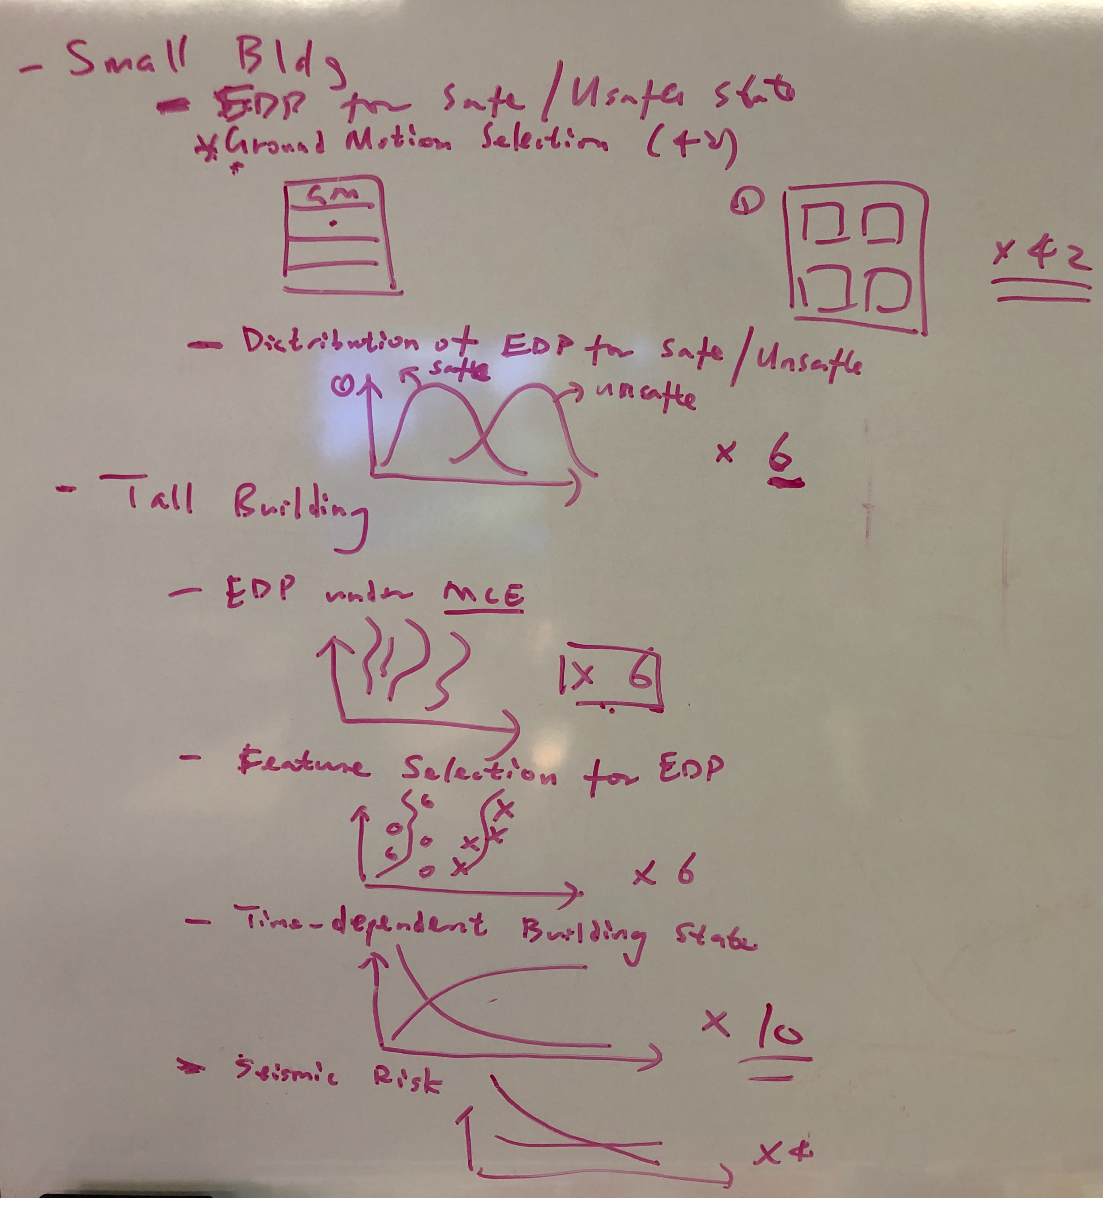 - Small Bldg
- EDP for Safe/Usafe state
* Ground Motion Selection (42)
GM
①
x 42
- Distribution of EDP for safe/Unsafe
①
safe
unsafe
x 6
- Tall Building
- EDP under MCE
x 6
- Feature Selection for EDP
x 6
- Time-dependent Building State
x 10
- Seismic Risk
x 4